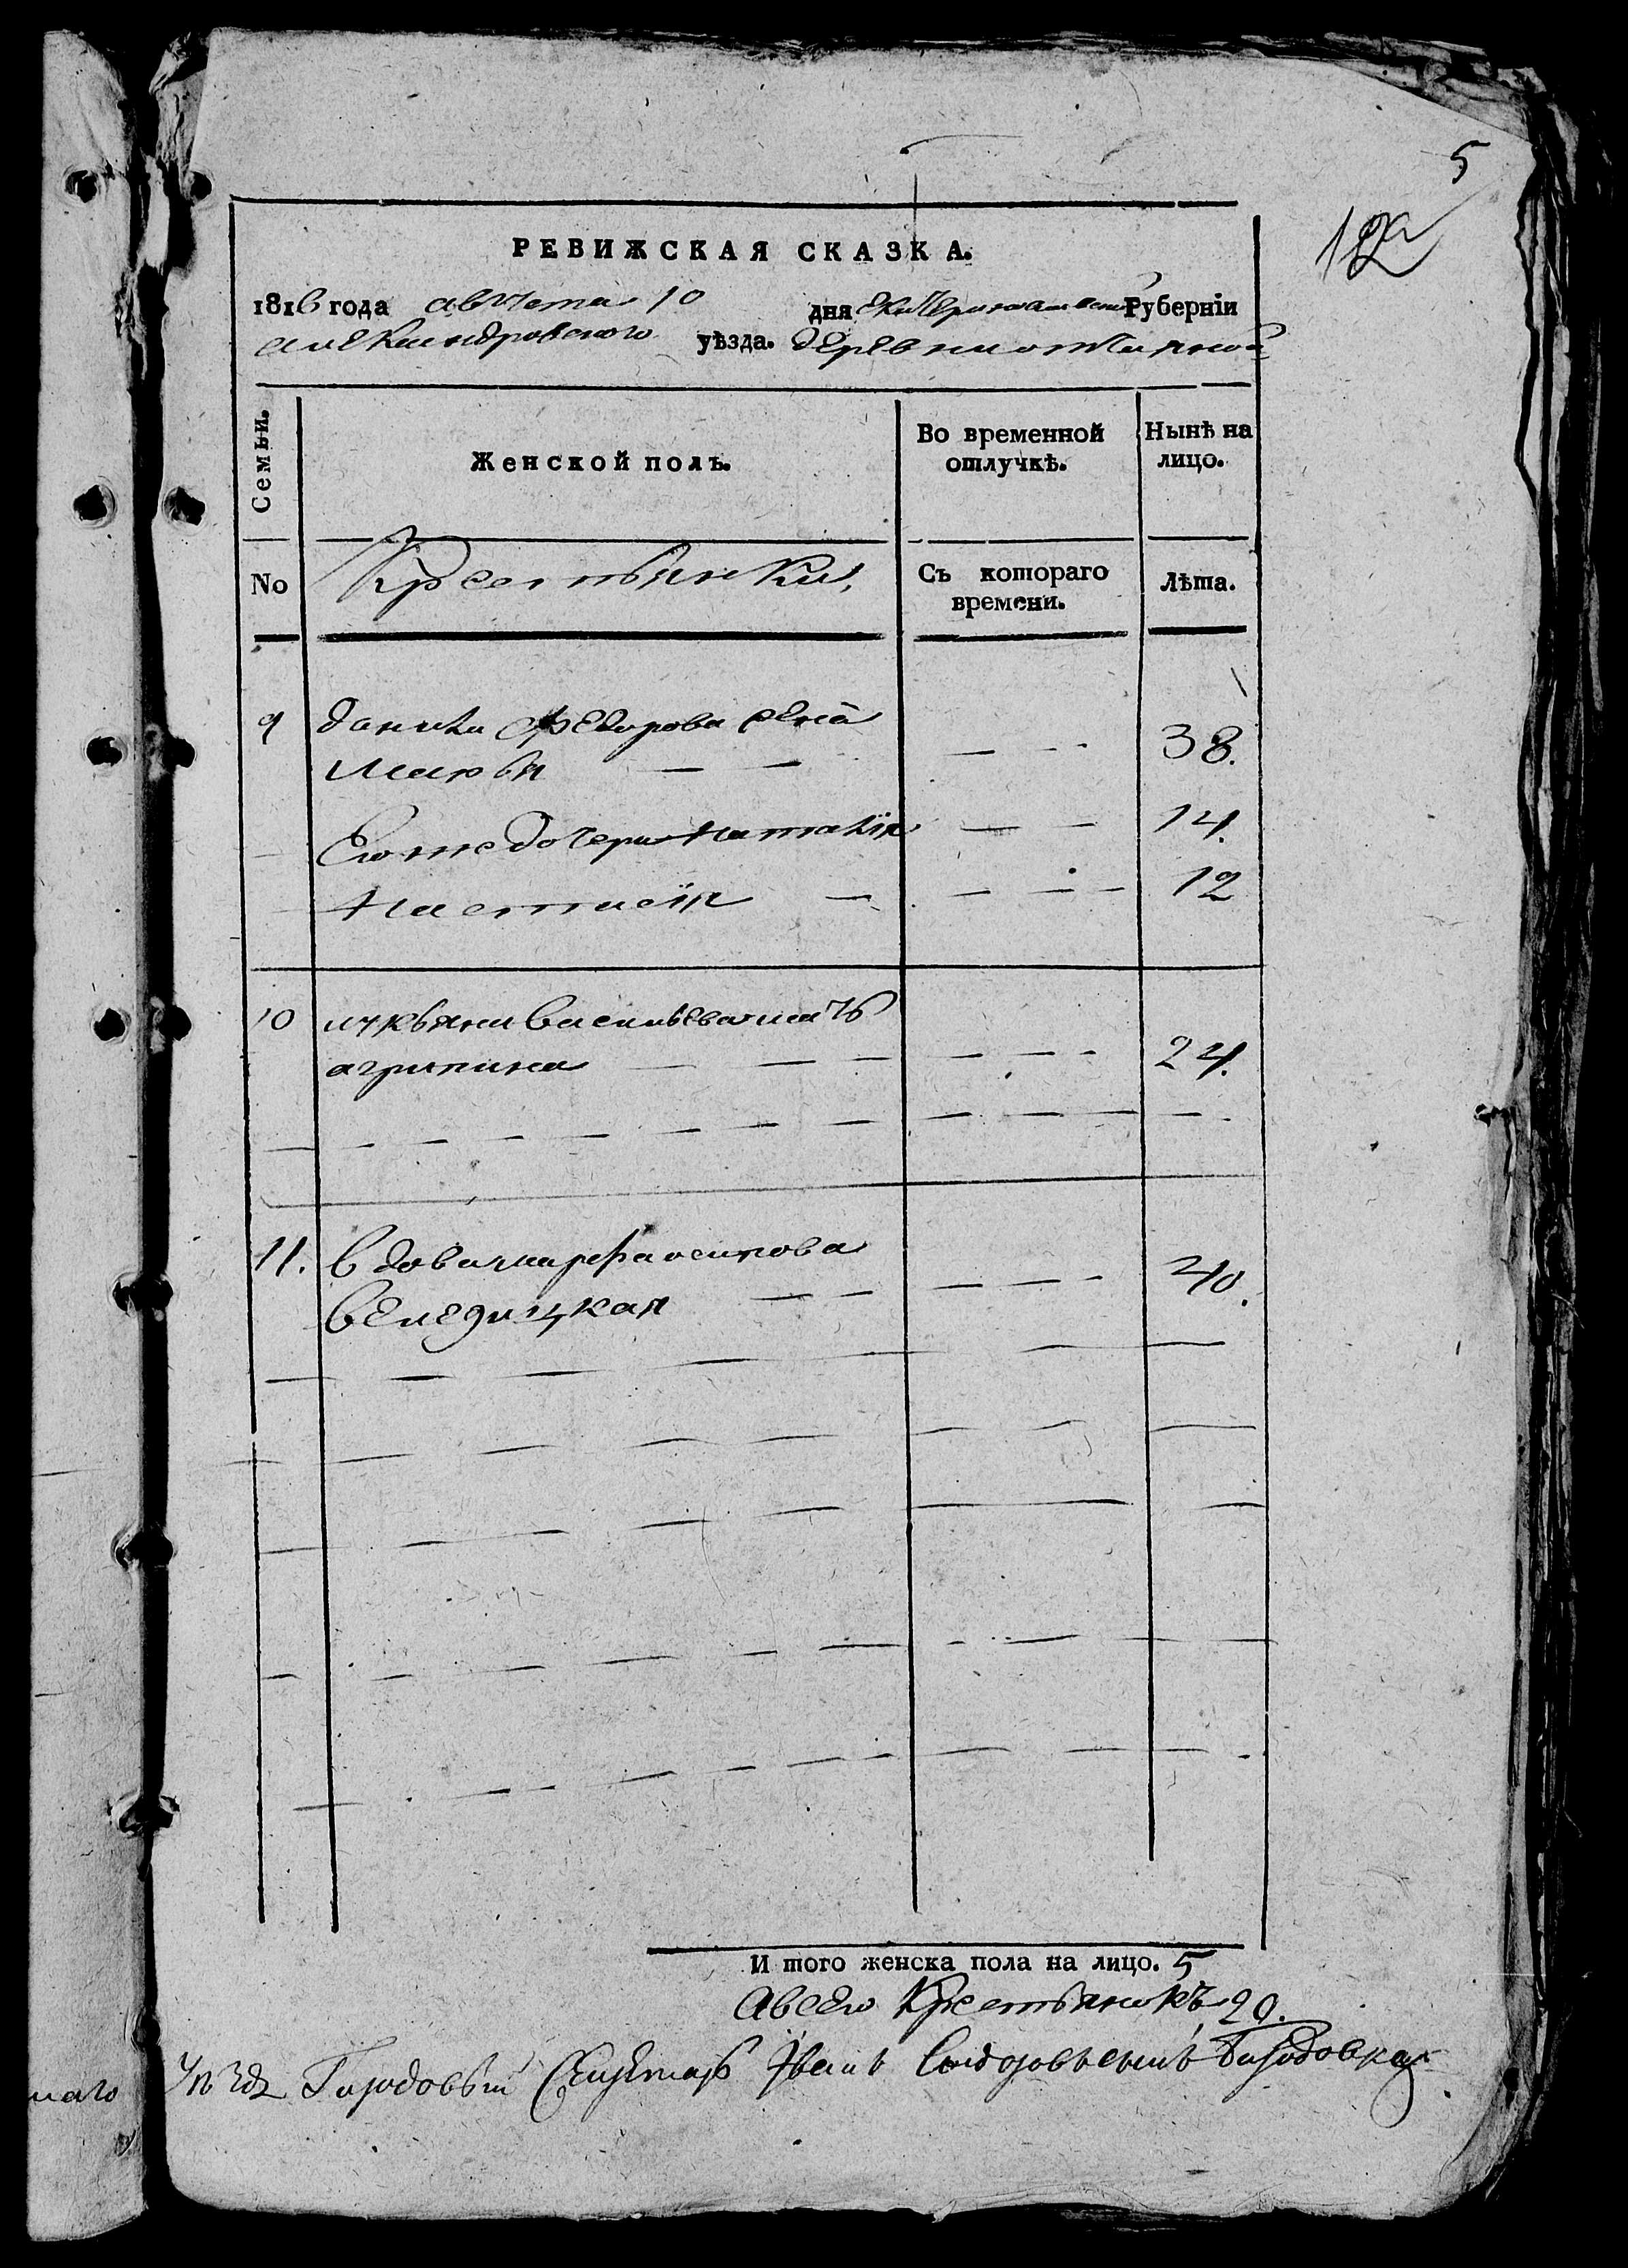 5
122
РЕВИЖСКАЯ СКАЗКА.
1816 года августа 10 дня Екатеринославской Губерніи
александровского уѣзда. деревни отрадной
Семьи. Женской полъ. Во временной отлучкѣ. Нынѣ на лицо.
No Крестьянки. Съ котораго времени. Лѣта.
9 данила Федорова жена
Марья — — 38.
Его же дочери Наталія — — 14.
Настасія — — — 12
10 лукьяна Васильева мать
агрипина — — — 24.
11. вдова марфа осипова
велецицкая — — — 40.
И того женска пола на лицо. 5
а всего Крестьянокъ 20.
Городовый Секретарь Иванъ Сидоровъ сынъ
наго